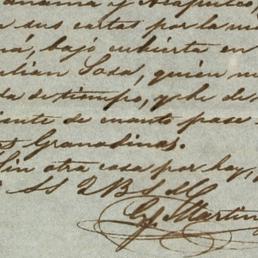 anama y Acapulco,
sus cartas por la
má, bajo cubierta en
ulian Sosa, quien
da de tiempo, y he
ente de cuanto pase
Granadinas.
Sin otra cosa por hoy,
SS 2 B S M
G. Martin